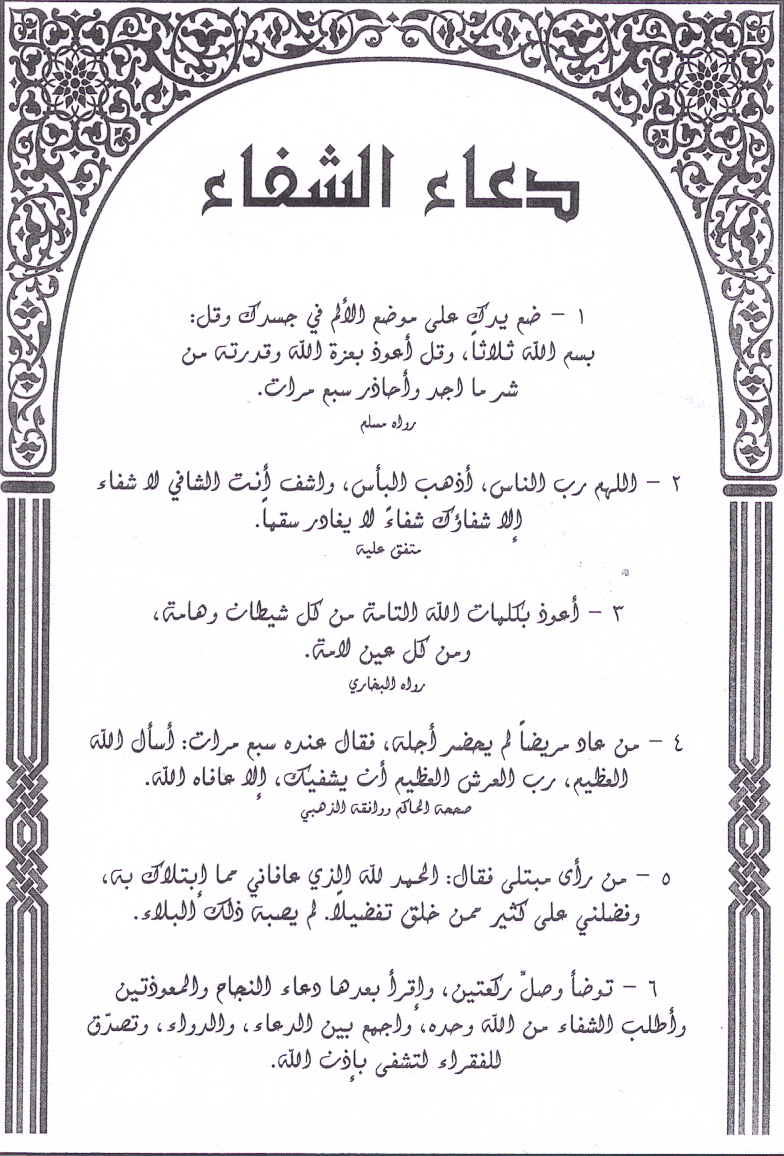 دعاء الشفاء
١ - ضع يدك على موضع الألم في جسدك وقل:
بسم الله ثلاثاً، وقل أعوذ بعزة الله وقدرته من
شر ما اجد وأحاذر سبع مرات.
رواه مسلم
٢ - اللهم رب الناس، أذهب البأس، واشف أنت الشافي لا شفاء
إلا شفاؤك شفاءً لا يغادر سقماً.
متفق علية
٣ - أعوذ بكلمات الله التامة من كل شيطان وهامة،
ومن كل عين لامة.
رواه البخاري
٤ - من عاد مريضاً لم يحضر أجلة، فقال عنده سبع مرات: أسأل الله
العظيم، رب العرش العظيم أن يشفيك، إلا عافاه الله.
صححة الحاكم ووافقة الذهبي
٥ - من رأى مبتلى فقال: الحمد لله الذي عافاني مما إبتلاك به،
وفضلني على كثير ممن خلق تفضيلاً. لم يصبة ذلك البلاء.
٦ - توضأ وصلِّ ركعتين، وإقرأ بعدها دعاء النجاح والمعوذتين
وأطلب الشفاء من الله وحده، واجمع بين الدعاء، والدواء، وتصدّق
للفقراء لتشفى بإذن الله.